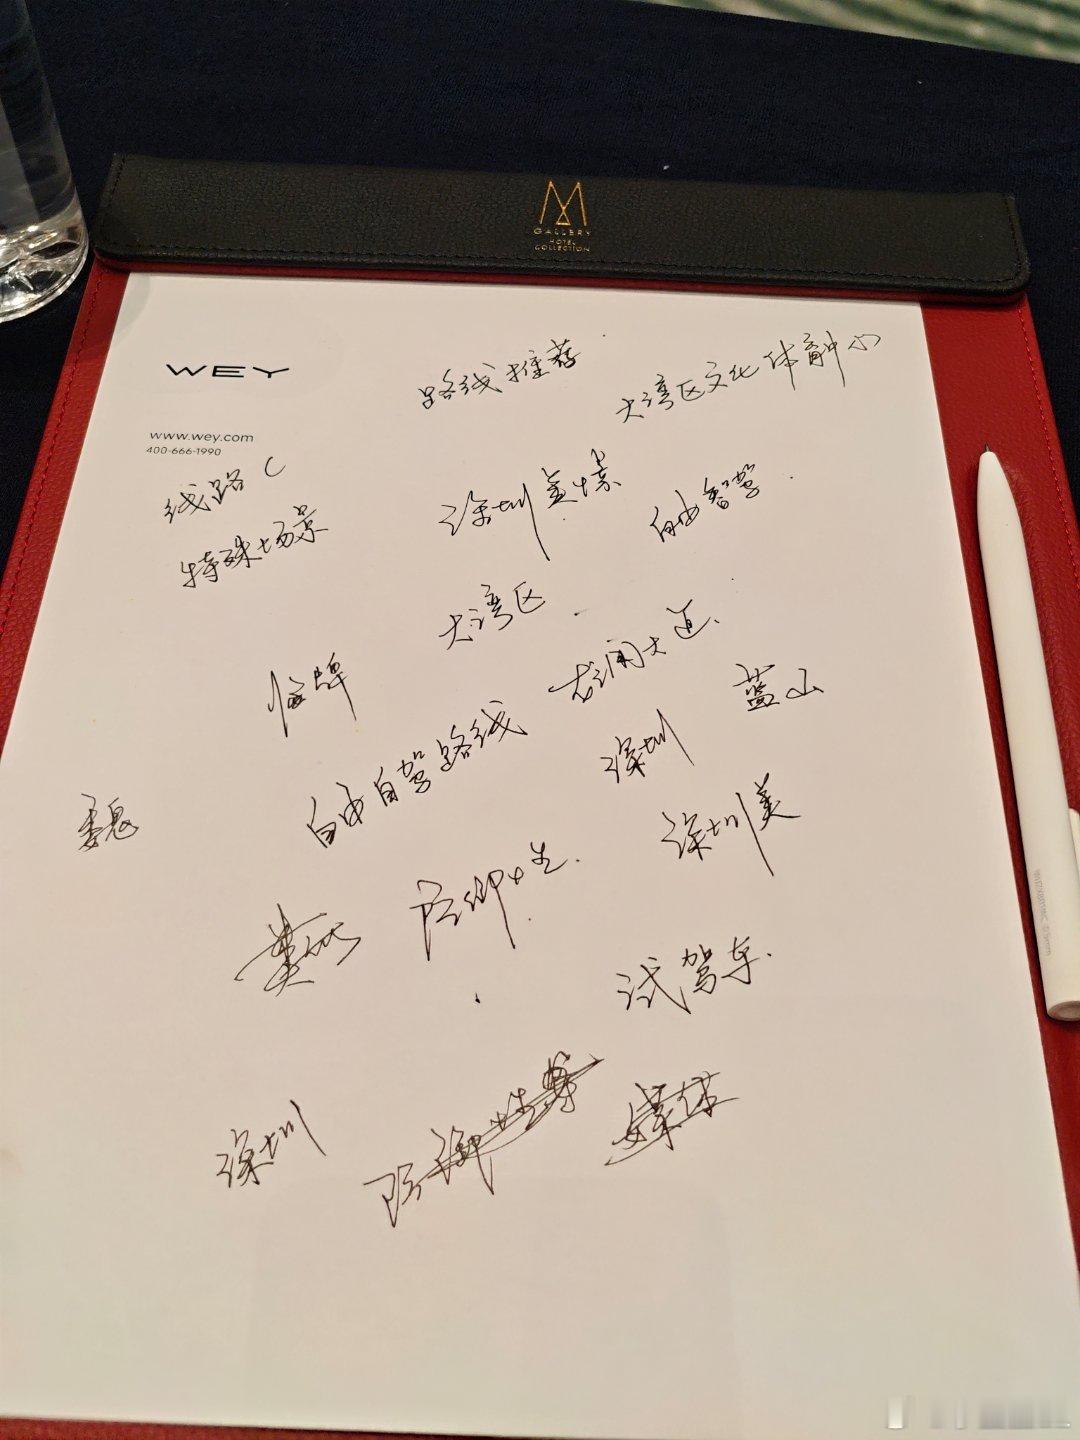 M
GALLERY
HOTEL
COLLECTION
WEY
www.wey.com
400-666-1990
路线推荐
大湾区文化体育中心
线路C
深圳
自由智驾
特殊场景
大湾区
龙澜大道
蓝山
临牌
深圳
自由自驾路线
魏
深圳美
试驾车
深圳
媒体